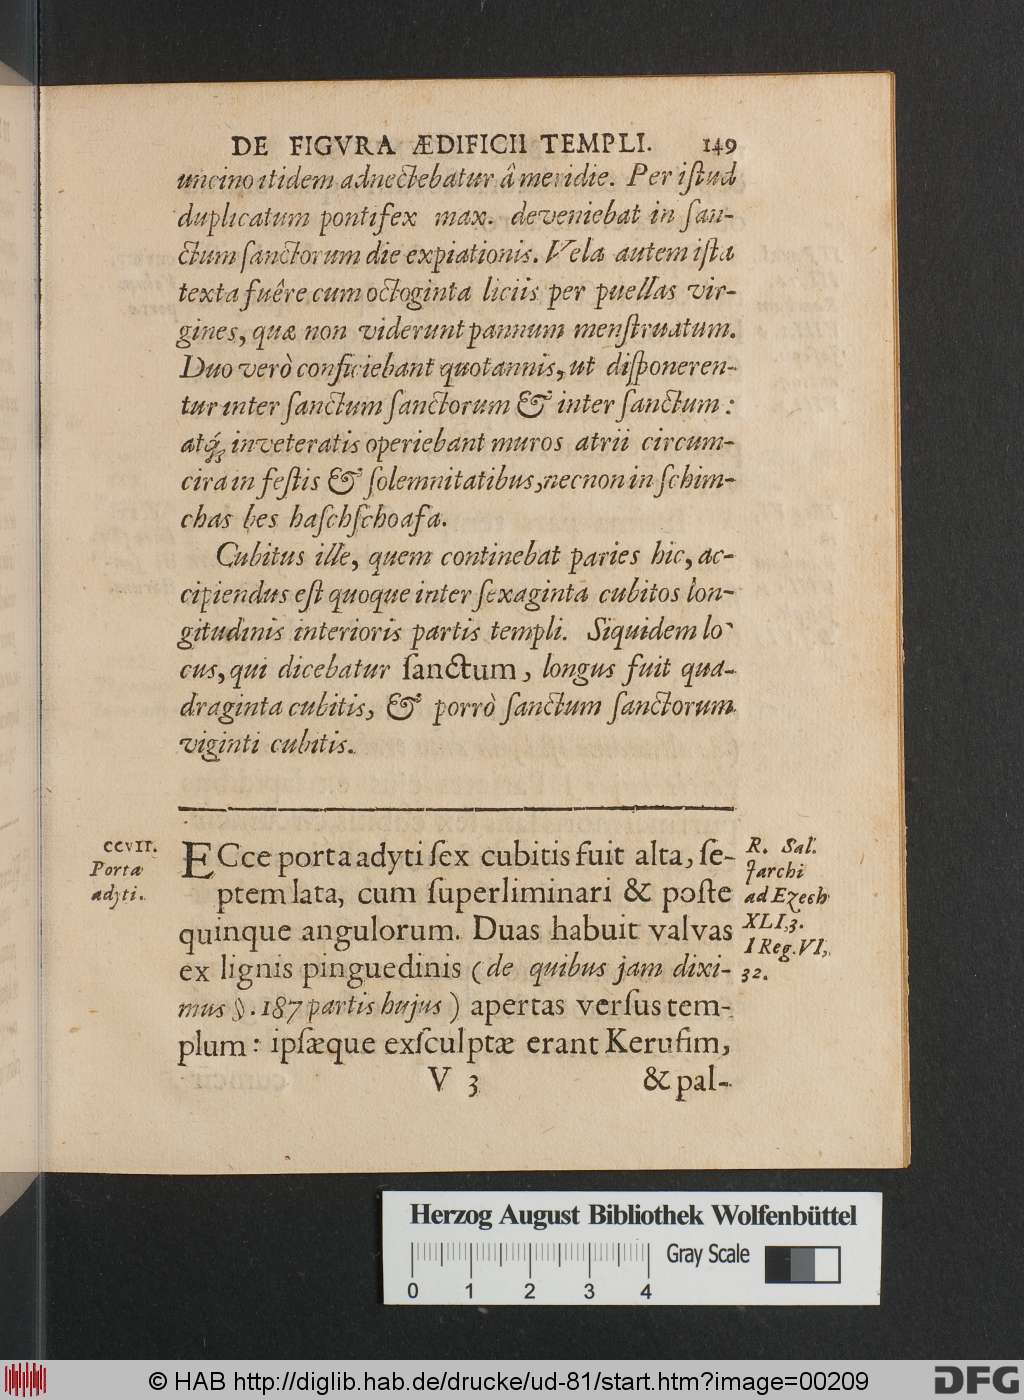 DE FIGVRA ÆDIFICII TEMPLI. 149
uncino itidem adnectebatur â meridie. Per iſtud
duplicatum pontifex max. deveniebat in ſan-
ctum ſanctorum die expiationis. Vela autem iſta
texta fuêre cum octoginta liciis per puellas vir-
gines, quæ non viderunt pannum menſtruatum.
Duo verò conficiebant quotannis, ut diſponeren-
tur inter ſanctum ſanctorum & inter ſanctum:
atq́; inveteratis operiebant muros atrii circum-
cira in feſtis & ſolemnitatibus, necnon in ſchim-
chas bes haſchſchoafa.
Cubitus ille, quem continebat paries hic, ac-
cipiendus eſt quoque inter ſexaginta cubitos lon-
gitudinis interioris partis templi. Siquidem lo-
cus, qui dicebatur ſanctum, longus fuit qua-
draginta cubitis, & porrò ſanctum ſanctorum
viginti cubitis.
CCVII.
Porta
adyti.
ECce porta adyti ſex cubitis fuit alta, ſe-
ptem lata, cum ſuperliminari & poſte
quinque angulorum. Duas habuit valvas
ex lignis pinguedinis (de quibus jam dixi-
mus §. 187 partis hujus) apertas verſus tem-
plum: ipſæque exſculptæ erant Kerufim,
R. Sal.
Jarchi
ad Ezech
XLI,3.
1 Reg. VI,
32.
V 3 & pal-
Herzog August Bibliothek Wolfenbüttel
Gray Scale
0 1 2 3 4
© HAB http://diglib.hab.de/drucke/ud-81/start.htm?image=00209
DFG